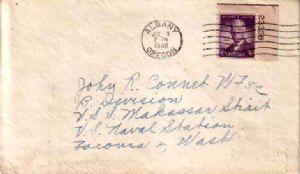 ALBANY
1948
OREGON
John R. Connet
B. Division
U.S.S. Makassar Strait
U.S. Naval Station
Tacoma Wash